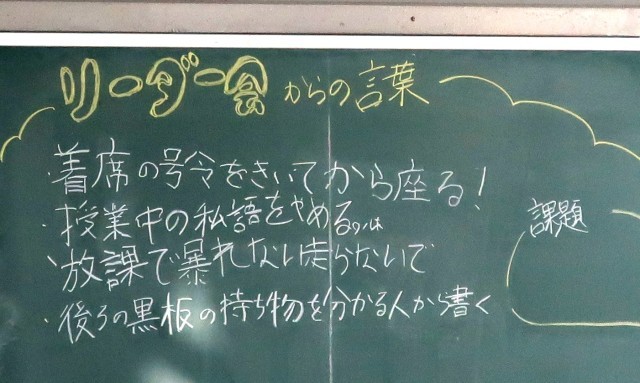 リーダー会からの言葉
・着席の号令をきいてから座る!
・授業中の私語をやめる
・放課で暴れない走らないで
・後ろの黒板の持ち物を分かる人から書く
課題